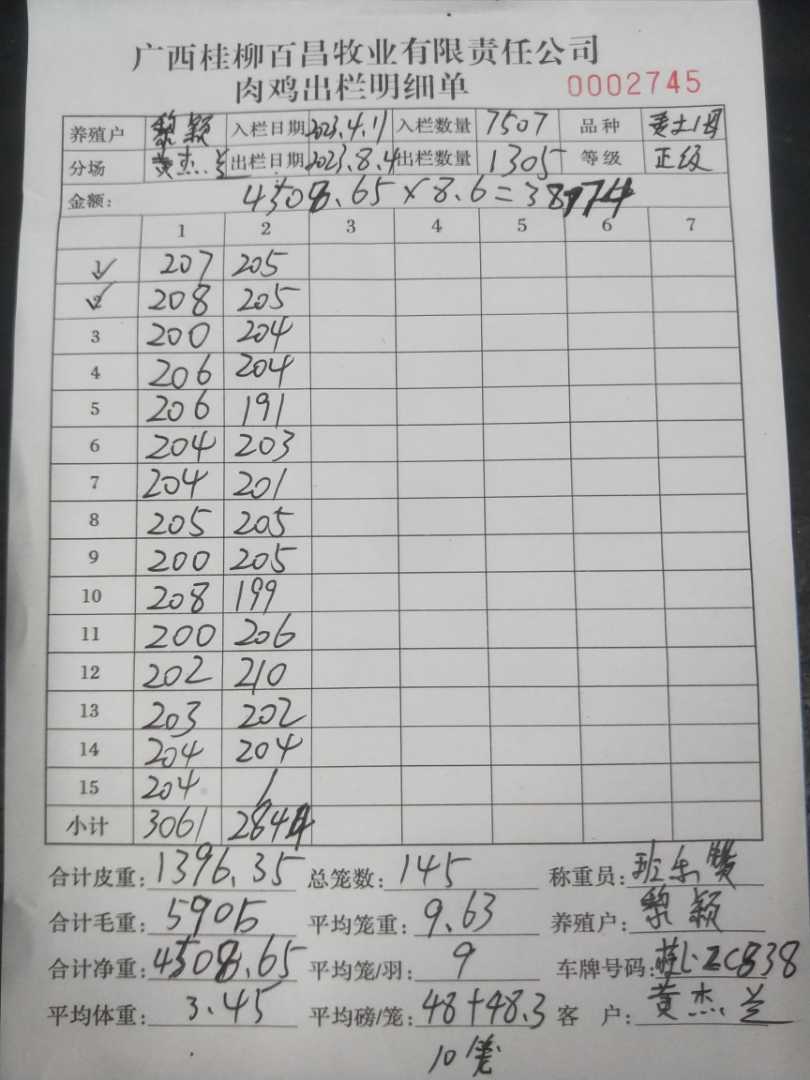 广西桂柳百昌牧业有限责任公司
肉鸡出栏明细单 0002745
养殖户 黎颖 入栏日期 2023.4.11 入栏数量 7507 品种
分场 黄杰兰 出栏日期 2023.8.4 出栏数量 1305 等级 正级
金额: 4508.65×8.6=38774
1 2 3 4 5 6 7
1 207 205
2 208 205
3 200 204
4 206 204
5 206 191
6 204 203
7 204 201
8 205 205
9 200 205
10 208 199
11 200 206
12 202 210
13 203 202
14 204 204
15 204 /
小计 3061 2844
合计皮重: 1396.35 总笼数: 145 称重员:
合计毛重: 5905 平均笼重: 9.63 养殖户: 黎颖
合计净重: 4508.65 平均笼/羽: 9 车牌号码: 桂L·ZC838
平均体重: 3.45 平均磅/笼: 48+48.3 客 户: 黄杰兰
10笼